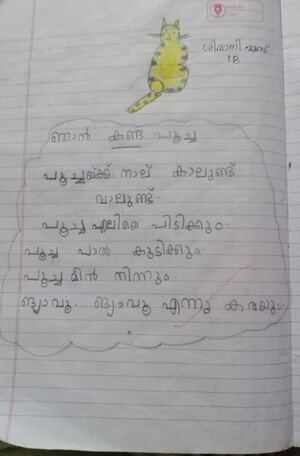 ശിവാനി.എസ്
1B
ഞാൻ കണ്ട പൂച്ച
പൂച്ചയ്ക്ക് നാല് കാലുണ്ട്
വാലുണ്ട്.
പൂച്ച എലിയെ പിടിക്കും.
പൂച്ച പാൽ കുടിക്കും.
പൂച്ച മീൻ തിന്നും.
മ്യാവൂ... മ്യാവൂ എന്നു കരയും.